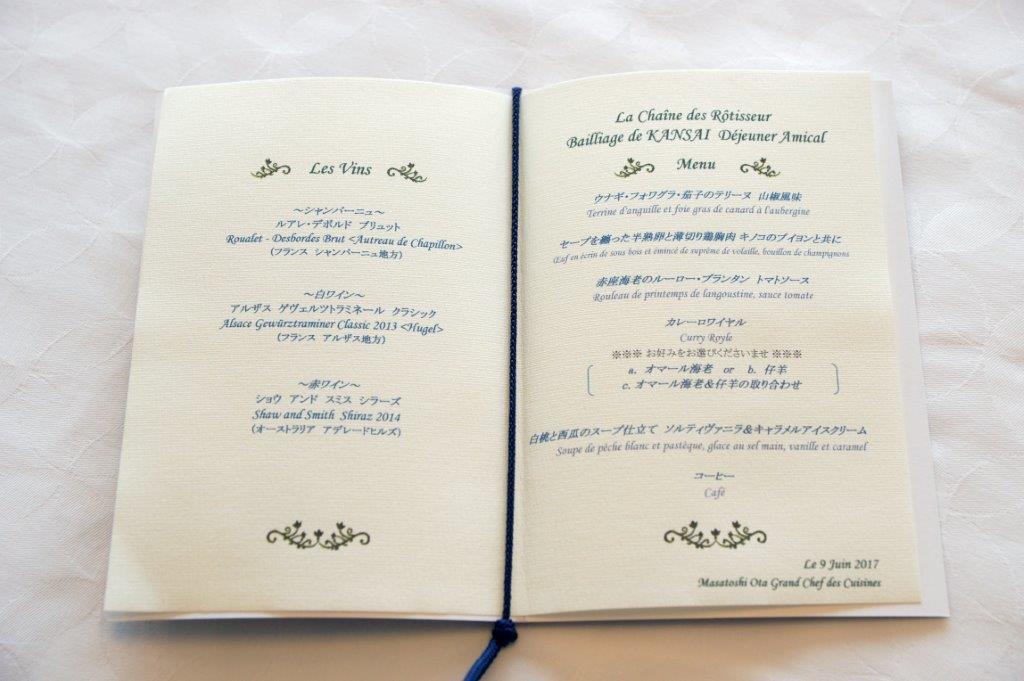 Les Vins
～シャンパーニュ～
ルアレ・デボルド ブリュット
Roualet - Desbordes Brut <Autreau de Chapillon>
(フランス シャンパーニュ地方)
～白ワイン～
アルザス ゲヴェルツトラミネール クラシック
Alsace Gewürztraminer Classic 2013 <Hugel>
(フランス アルザス地方)
～赤ワイン～
ショウ アンド スミス シラーズ
Shaw and Smith Shiraz 2014
(オーストラリア アデレードヒルズ)
La Chaîne des Rôtisseur
Bailliage de KANSAI Déjeuner Amical
Menu
ウナギ・フォワグラ・茄子のテリーヌ 山椒風味
Terrine d'anguille et foie gras de canard à l'aubergine
セープを纏った半熟卵と薄切り鶏胸肉 キノコのブイヨンと共に
Œuf en écrin de sous bois et émincé de suprême de volaille, bouillon de champignons
赤座海老のルーロー・プランタン トマトソース
Rouleau de printemps de langoustine, sauce tomate
カレーロワイヤル
Curry Royle
※※※ お好みをお選びくださいませ ※※※
a. オマール海老 or b. 仔羊
c. オマール海老&仔羊の取り合わせ
白桃と西瓜のスープ仕立て ソルティヴァニラ&キャラメルアイスクリーム
Soupe de pêche blanc et pastèque, glace au sel main, vanille et caramel
コーヒー
Café
Le 9 Juin 2017
Masatoshi Ota Grand Chef des Cuisines